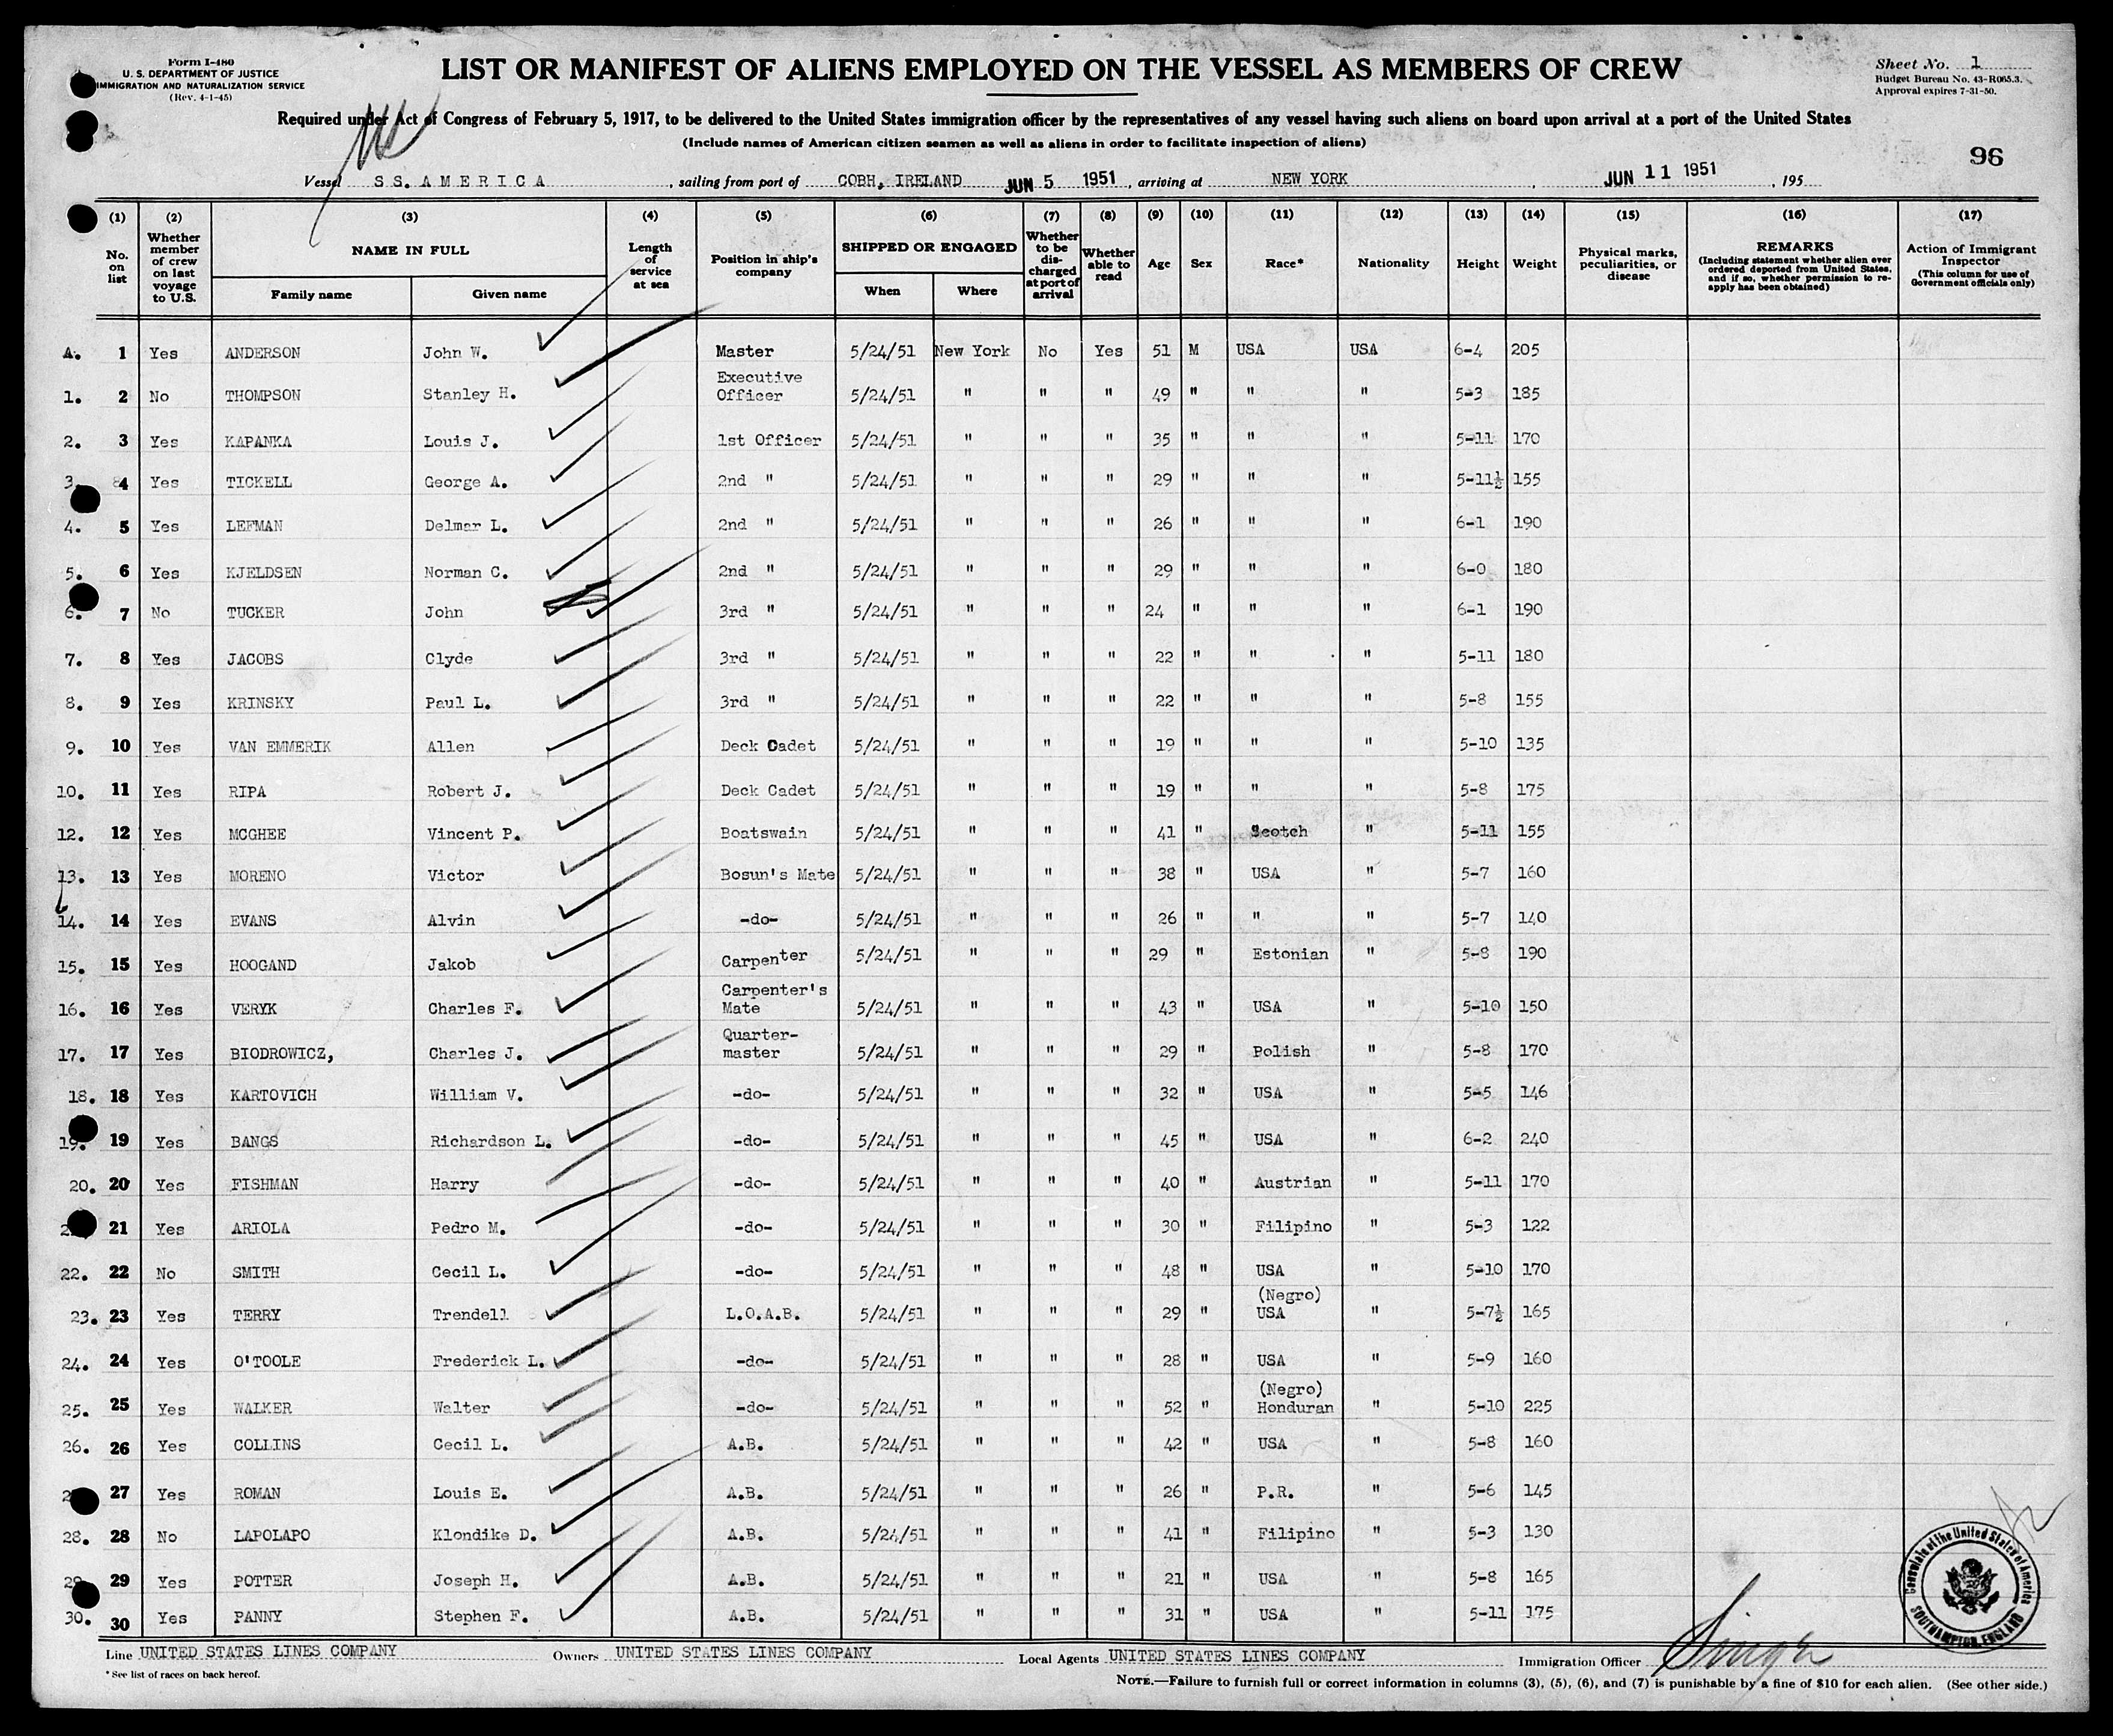 Form I-480
U. S. DEPARTMENT OF JUSTICE
IMMIGRATION AND NATURALIZATION SERVICE
(Rev. 4-1-45)
LIST OR MANIFEST OF ALIENS EMPLOYED ON THE VESSEL AS MEMBERS OF CREW
Sheet No. 1
Budget Bureau No. 43-R065.3.
Approval expires 7-31-50.
Required under Act of Congress of February 5, 1917, to be delivered to the United States immigration officer by the representatives of any vessel having such aliens on board upon arrival at a port of the United States
(Include names of American citizen seamen as well as aliens in order to facilitate inspection of aliens)
96
Vessel SS. AMERICA, sailing from port of COBH, IRELAND JUN 5 1951, arriving at NEW YORK, JUN 11 1951, 195
(1) (2) (3) (4) (5) (6) (7) (8) (9) (10) (11) (12) (13) (14) (15) (16) (17)
No. on list
Whether member of crew on last voyage to U.S.
NAME IN FULL
Family name
Given name
Length of service at sea
Position in ship's company
SHIPPED OR ENGAGED
When
Where
Whether to be discharged at port of arrival
Whether able to read
Age
Sex
Race*
Nationality
Height
Weight
Physical marks, peculiarities, or disease
REMARKS
(Including statement whether alien ever ordered deported from United States, and if so, whether permission to reapply has been obtained)
Action of Immigrant Inspector
(This column for use of Government officials only)
A. 1 Yes ANDERSON John W. Master 5/24/51 New York No Yes 51 M USA USA 6-4 205
1. 2 No THOMPSON Stanley H. Executive Officer 5/24/51 " " " 49 " " " 5-3 185
2. 3 Yes KAPANKA Louis J. 1st Officer 5/24/51 " " " 35 " " " 5-11 170
3. 4 Yes TICKELL George A. 2nd " 5/24/51 " " " 29 " " " 5-11½ 155
4. 5 Yes LEFMAN Delmar L. 2nd " 5/24/51 " " " 26 " " " 6-1 190
5. 6 Yes KJELDSEN Norman C. 2nd " 5/24/51 " " " 29 " " " 6-0 180
6. 7 No TUCKER John 3rd " 5/24/51 " " " 24 " " " 6-1 190
7. 8 Yes JACOBS Clyde 3rd " 5/24/51 " " " 22 " " " 5-11 180
8. 9 Yes KRINSKY Paul L. 3rd " 5/24/51 " " " 22 " " " 5-8 155
9. 10 Yes VAN EMMERIK Allen Deck Cadet 5/24/51 " " " 19 " " " 5-10 135
10. 11 Yes RIPA Robert J. Deck Cadet 5/24/51 " " " 19 " " " 5-8 175
12. 12 Yes MCGHEE Vincent P. Boatswain 5/24/51 " " " 41 " Scotch " 5-11 155
13. 13 Yes MORENO Victor Bosun's Mate 5/24/51 " " " 38 " USA " 5-7 160
14. 14 Yes EVANS Alvin -do- 5/24/51 " " " 26 " " " 5-7 140
15. 15 Yes HOOGAND Jakob Carpenter 5/24/51 " " " 29 " Estonian " 5-8 190
16. 16 Yes VERYK Charles F. Carpenter's Mate 5/24/51 " " " 43 " USA " 5-10 150
17. 17 Yes BIODROWICZ, Charles J. Quarter-master 5/24/51 " " " 29 " Polish " 5-8 170
18. 18 Yes KARTOVICH William V. -do- 5/24/51 " " " 32 " USA " 5-5 146
19. 19 Yes BANGS Richardson L. -do- 5/24/51 " " " 45 " USA " 6-2 240
20. 20 Yes FISHMAN Harry -do- 5/24/51 " " " 40 " Austrian " 5-11 170
21 Yes ARIOLA Pedro M. -do- 5/24/51 " " " 30 " Filipino " 5-3 122
22. 22 No SMITH Cecil L. -do- 5/24/51 " " " 48 " USA " 5-10 170
23. 23 Yes TERRY Trendell L.O.A.B. 5/24/51 " " " 29 " (Negro) USA " 5-7½ 165
24. 24 Yes O'TOOLE Frederick L. -do- 5/24/51 " " " 28 " USA " 5-9 160
25. 25 Yes WALKER Walter -do- 5/24/51 " " " 52 " (Negro) Honduran " 5-10 225
26. 26 Yes COLLINS Cecil L. A.B. 5/24/51 " " " 42 " USA " 5-8 160
27 Yes ROMAN Louis E. A.B. 5/24/51 " " " 26 " P.R. " 5-6 145
28. 28 No LAPOLAPO Klondike D. A.B. 5/24/51 " " " 41 " Filipino " 5-3 130
29. 29 Yes POTTER Joseph H. A.B. 5/24/51 " " " 21 " USA " 5-8 165
30. 30 Yes PANNY Stephen F. A.B. 5/24/51 " " " 31 " USA " 5-11 175
Consulate of the United States of America
SOUTHAMPTON, ENGLAND
Line UNITED STATES LINES COMPANY Owners UNITED STATES LINES COMPANY Local Agents UNITED STATES LINES COMPANY Immigration Officer
* See list of races on back hereof.
NOTE.—Failure to furnish full or correct information in columns (3), (5), (6), and (7) is punishable by a fine of $10 for each alien. (See other side.)